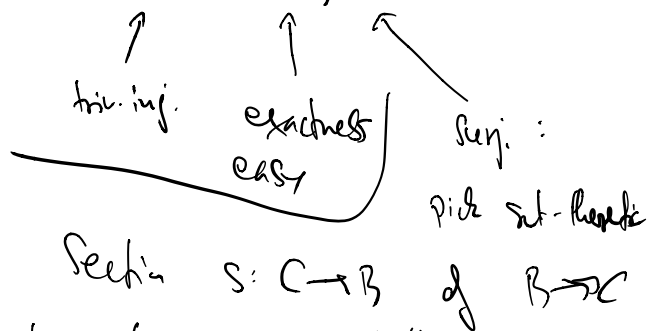 triv. inj.
exactness
easy
Surj. :
pick set-theoretic
Section S: C → B of B ↠ C